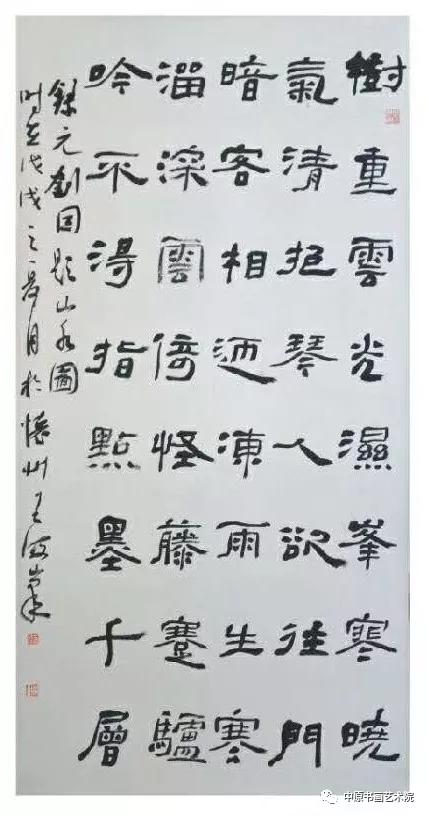 樹重雲光濕峯寒曉
氣清抱琴人欲往門
暗客相迎凍雨生寒
溜深雲倚怪藤蹇驢
吟不得指點墨千層
錄元劉因題山水圖
時在戊戌之月於懷州王海
中原书画艺术院